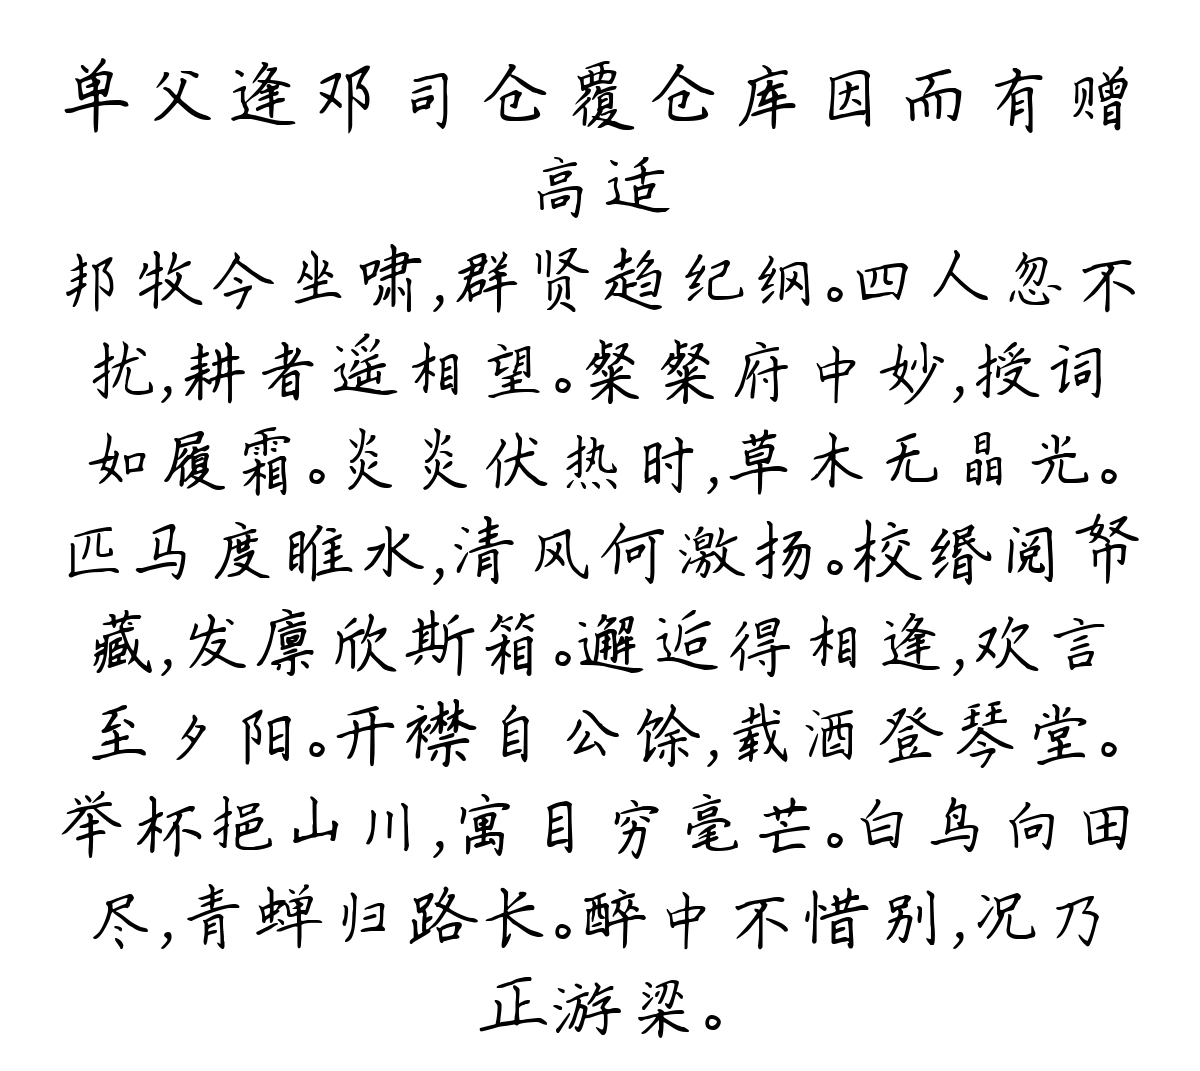 单父逢邓司仓覆仓库因而有赠
高适
邦牧今坐啸,群贤趋纪纲。四人忽不
扰,耕者遥相望。粲粲府中妙,授词
如履霜。炎炎伏热时,草木无晶光。
匹马度睢水,清风何激扬。校缗阅帑
藏,发廪欣斯箱。邂逅得相逢,欢言
至夕阳。开襟自公馀,载酒登琴堂。
举杯挹山川,寓目穷毫芒。白鸟向田
尽,青蝉归路长。醉中不惜别,况乃
正游梁。